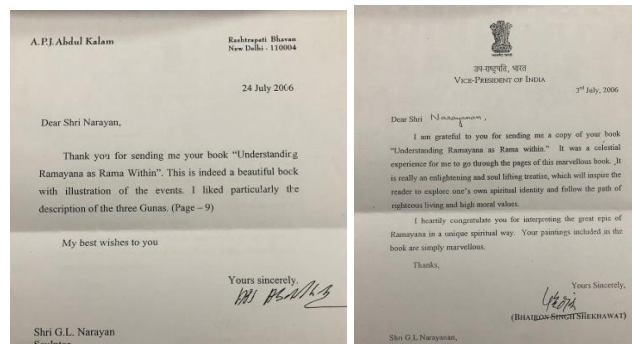 A.P.J. Abdul Kalam
Rashtrapati Bhavan
New Delhi - 110004
24 July 2006
Dear Shri Narayan,
Thank you for sending me your book “Understanding
Ramayana as Rama Within”. This is indeed a beautiful book
with illustration of the events. I liked particularly the
description of the three Gunas. (Page – 9)
My best wishes to you
Yours sincerely,
Shri G.L. Narayan
Sculptor
उप-राष्ट्रपति, भारत
VICE-PRESIDENT OF INDIA
3rd July, 2006
Dear Shri Narayanan,
I am grateful to you for sending me a copy of your book
“Understanding Ramayana as Rama within.” It was a celestial
experience for me to go through the pages of this marvellous book. It
is really an enlightening and soul lifting treatise, which will inspire the
reader to explore one's own spiritual identity and follow the path of
righteous living and high moral values.
I heartily congratulate you for interpreting the great epic of
Ramayana in a unique spiritual way. Your paintings included in the
book are simply marvellous.
Thanks,
Yours Sincerely,
(BHAIRON SINGH SHEKHAWAT)
Shri G.L Narayanan,